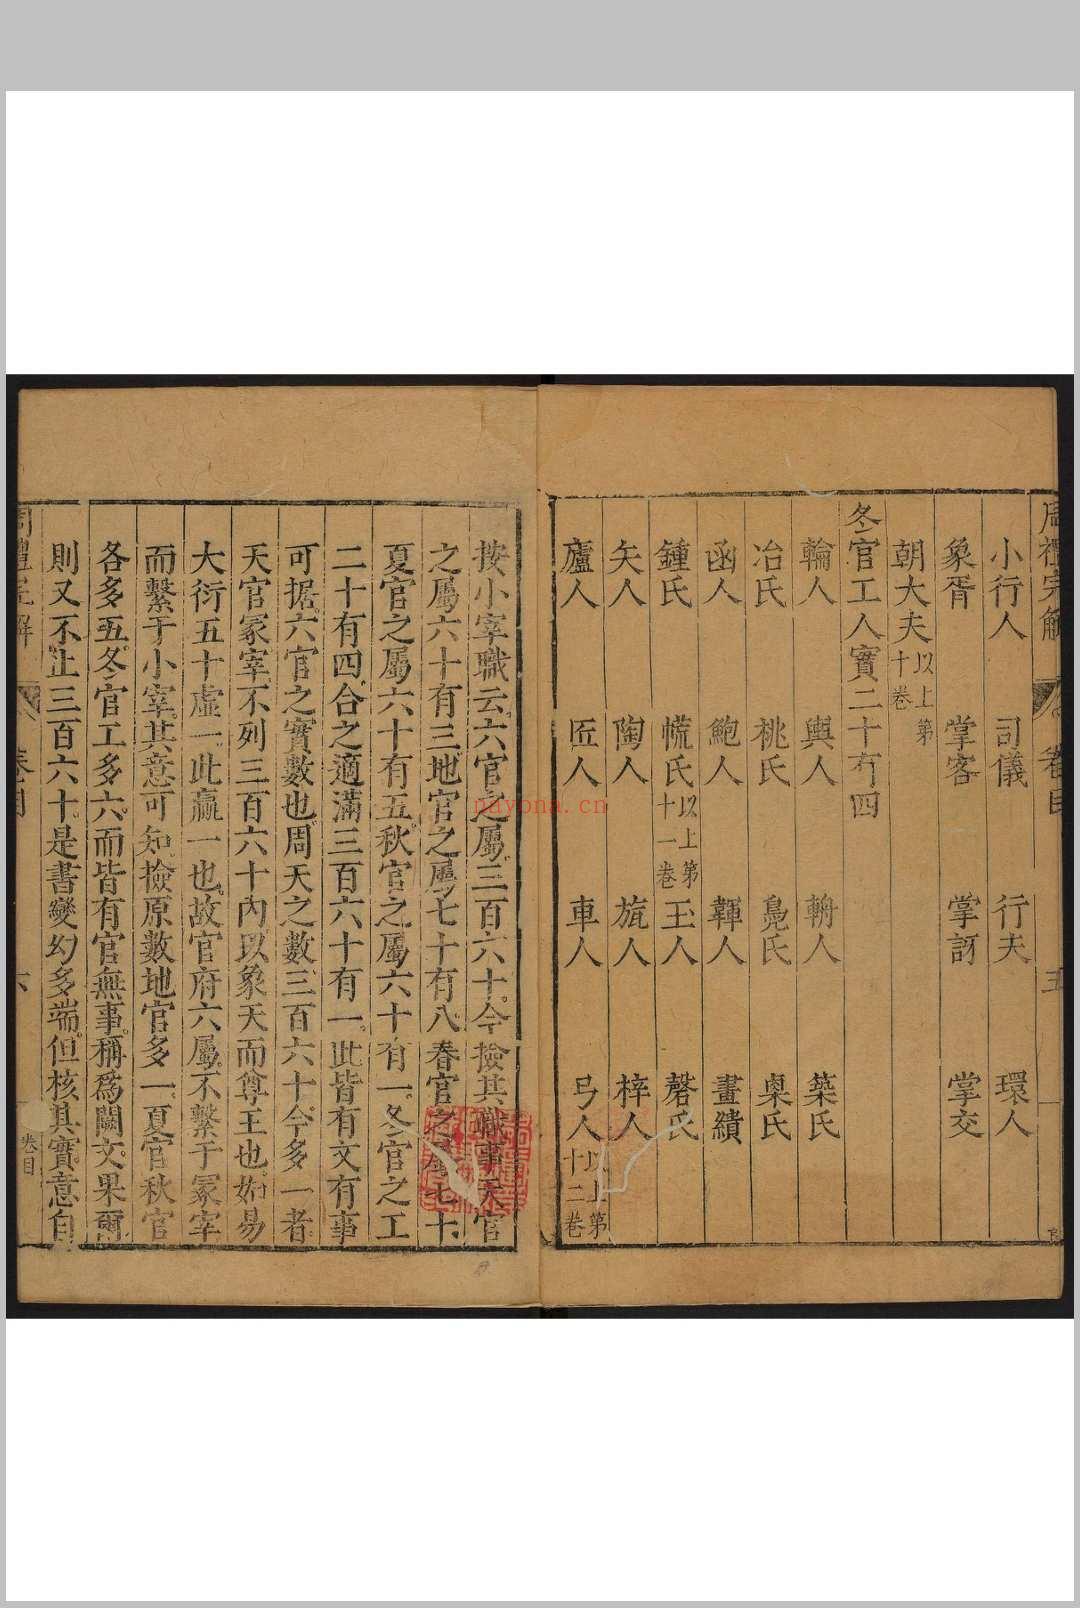 小行人 司儀 行夫 環人
象胥 掌客 掌訝 掌交
朝大夫 以上第十卷
冬官工人實二十有四
輪人 輿人 輈人 築氏
冶氏 桃氏 鳧氏 㮚氏
函人 鮑人 韗人 畫繢
鍾氏 㡛氏 以上第十一卷 玉人 磬氏
矢人 陶人 旊人 梓人
廬人 匠人 車人 弓人 以上第十二卷
按小宰職云六官之屬三百六十今撿其職事天官
之屬六十有三地官之屬七十有八春官之屬七十
夏官之屬六十有五秋官之屬六十有一冬官之工
二十有四合之適滿三百六十有一此皆有文有事
可据六官之實數也周天之數三百六十今多一者
天官冢宰不列三百六十內以象天而尊王也如易
大衍五十虛一此贏一也故官府六屬不繫于冢宰
而繫于小宰其意可知撿原數地官多一夏官秋官
各多五冬官工多六而皆有官無事稱爲闕文果爾
則又不止三百六十是書變幻多端但核其實意自
卷目
六
卷目
nayona.cn